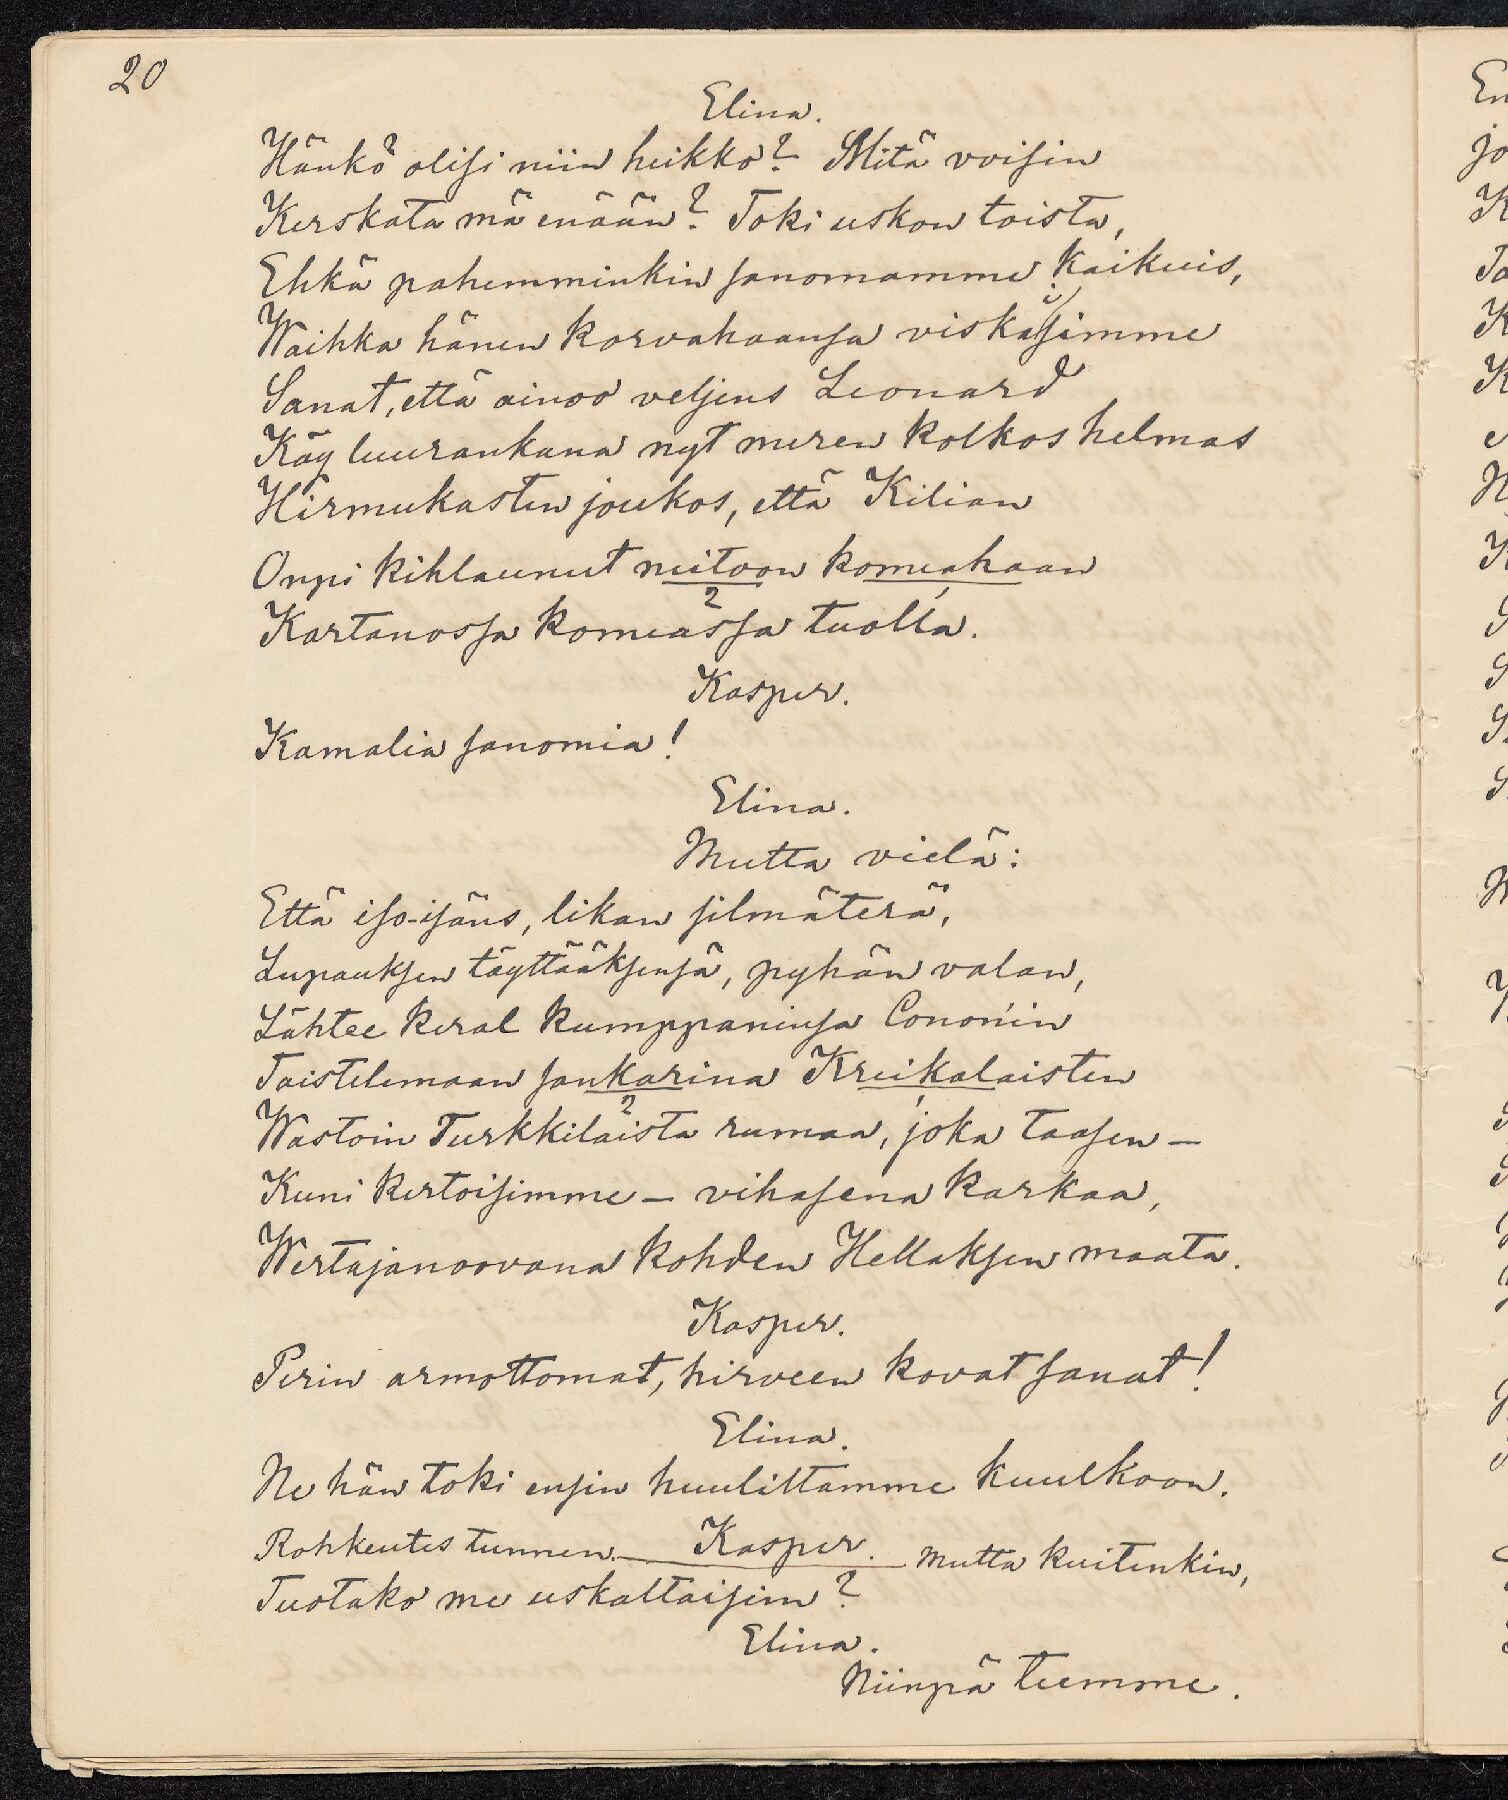 20
Elina.
Hänkö olisi niin heikko? Mitä voisin
Kerskata mä enään? Toki uskon toista,
Ehkä pahemminkin sanomamme kaikuis,
Waihka hänen korvahaansa viskasimme
Sanat, että ainoo veljens Leonard
Käy luurankana nyt meren kolkos helmas
Hirmukasten joukos, että Kilian
Onpi kihlaunut neitoon komeahaan
2 1
Kartanossa komeassa tuolla.
Kasper.
Kamalia sanomia!
Elina.
Mutta vielä:
Että iso-isäns, likan silmäterä,
Lupauksen täyttääksensä, pyhän valan,
Lähtee keral kumppaninsa Conon'in
Taistelemaan sankarina Kreikalaisten
2 1
Wastoin Turkkilaista rumaa, joka taasen —
Kuni kertoisimme — vihasena karkaa,
Wertajanoovana kohden Hellaksen maata.
Kasper.
Perin armottomat, hirveen kovat sanat!
Elina.
Ne hän toki ensin huulittamme kuulkoon.
Kasper.
Rohkeutes tunnen — mutta kuitenkin,
Tuotako me uskaltaisim?
Elina.
Niinpä teemme.
En
jo
K
To
K
K